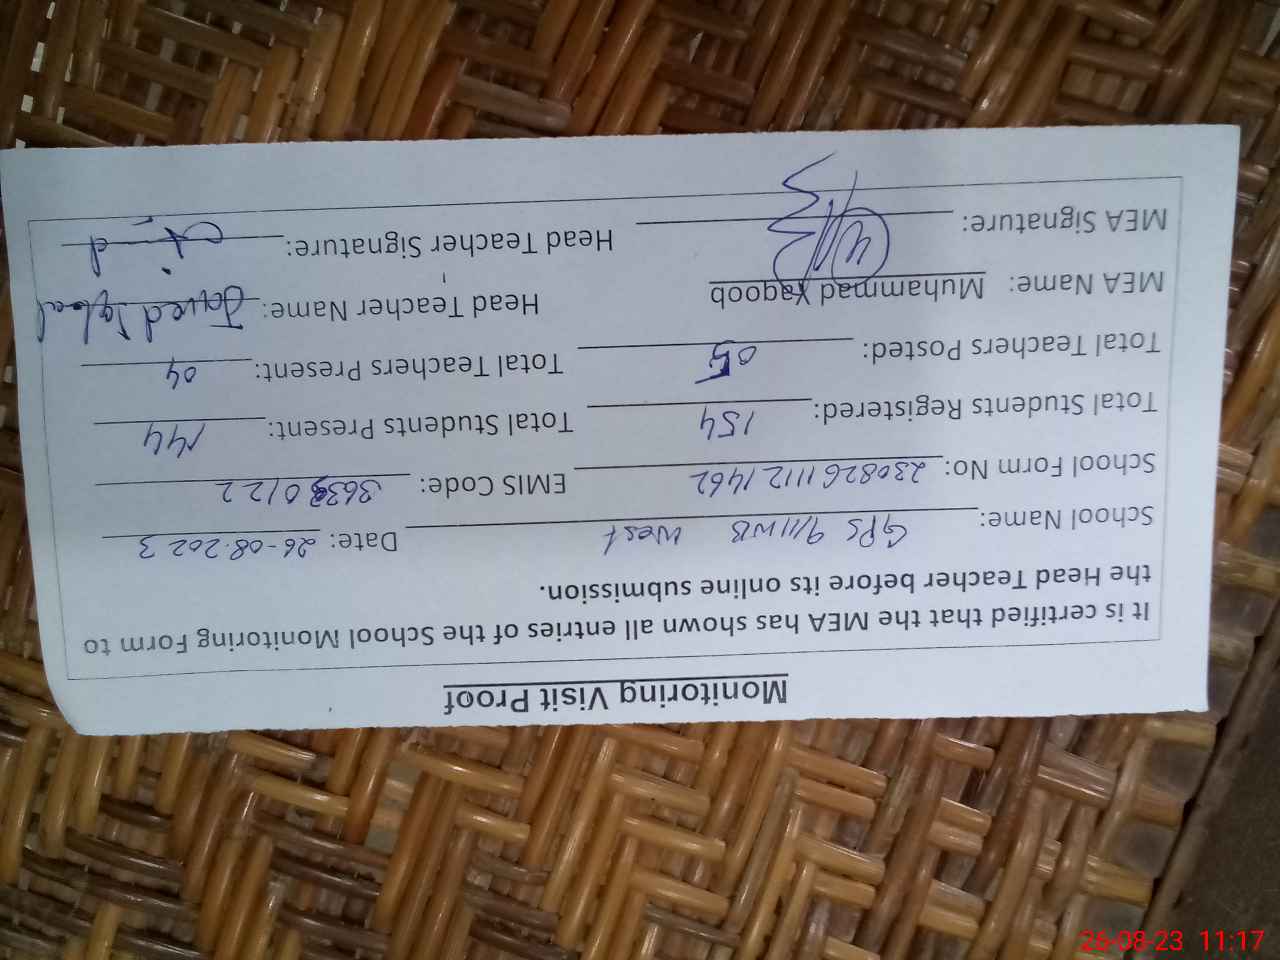 Monitoring Visit Proof
It is certified that the MEA has shown all entries of the School Monitoring Form to
the Head Teacher before its online submission.
School Name: GPS 9/11WB West Date: 26-08-2023
School Form No: 23082611121462 EMIS Code: 36330122
Total Students Registered: 154 Total Students Present: 144
Total Teachers Posted: 05 Total Teachers Present: 04
MEA Name: Muhammad Yaqoob Head Teacher Name: Javed Iqbal
MEA Signature: Head Teacher Signature:
26-08-23 11:17